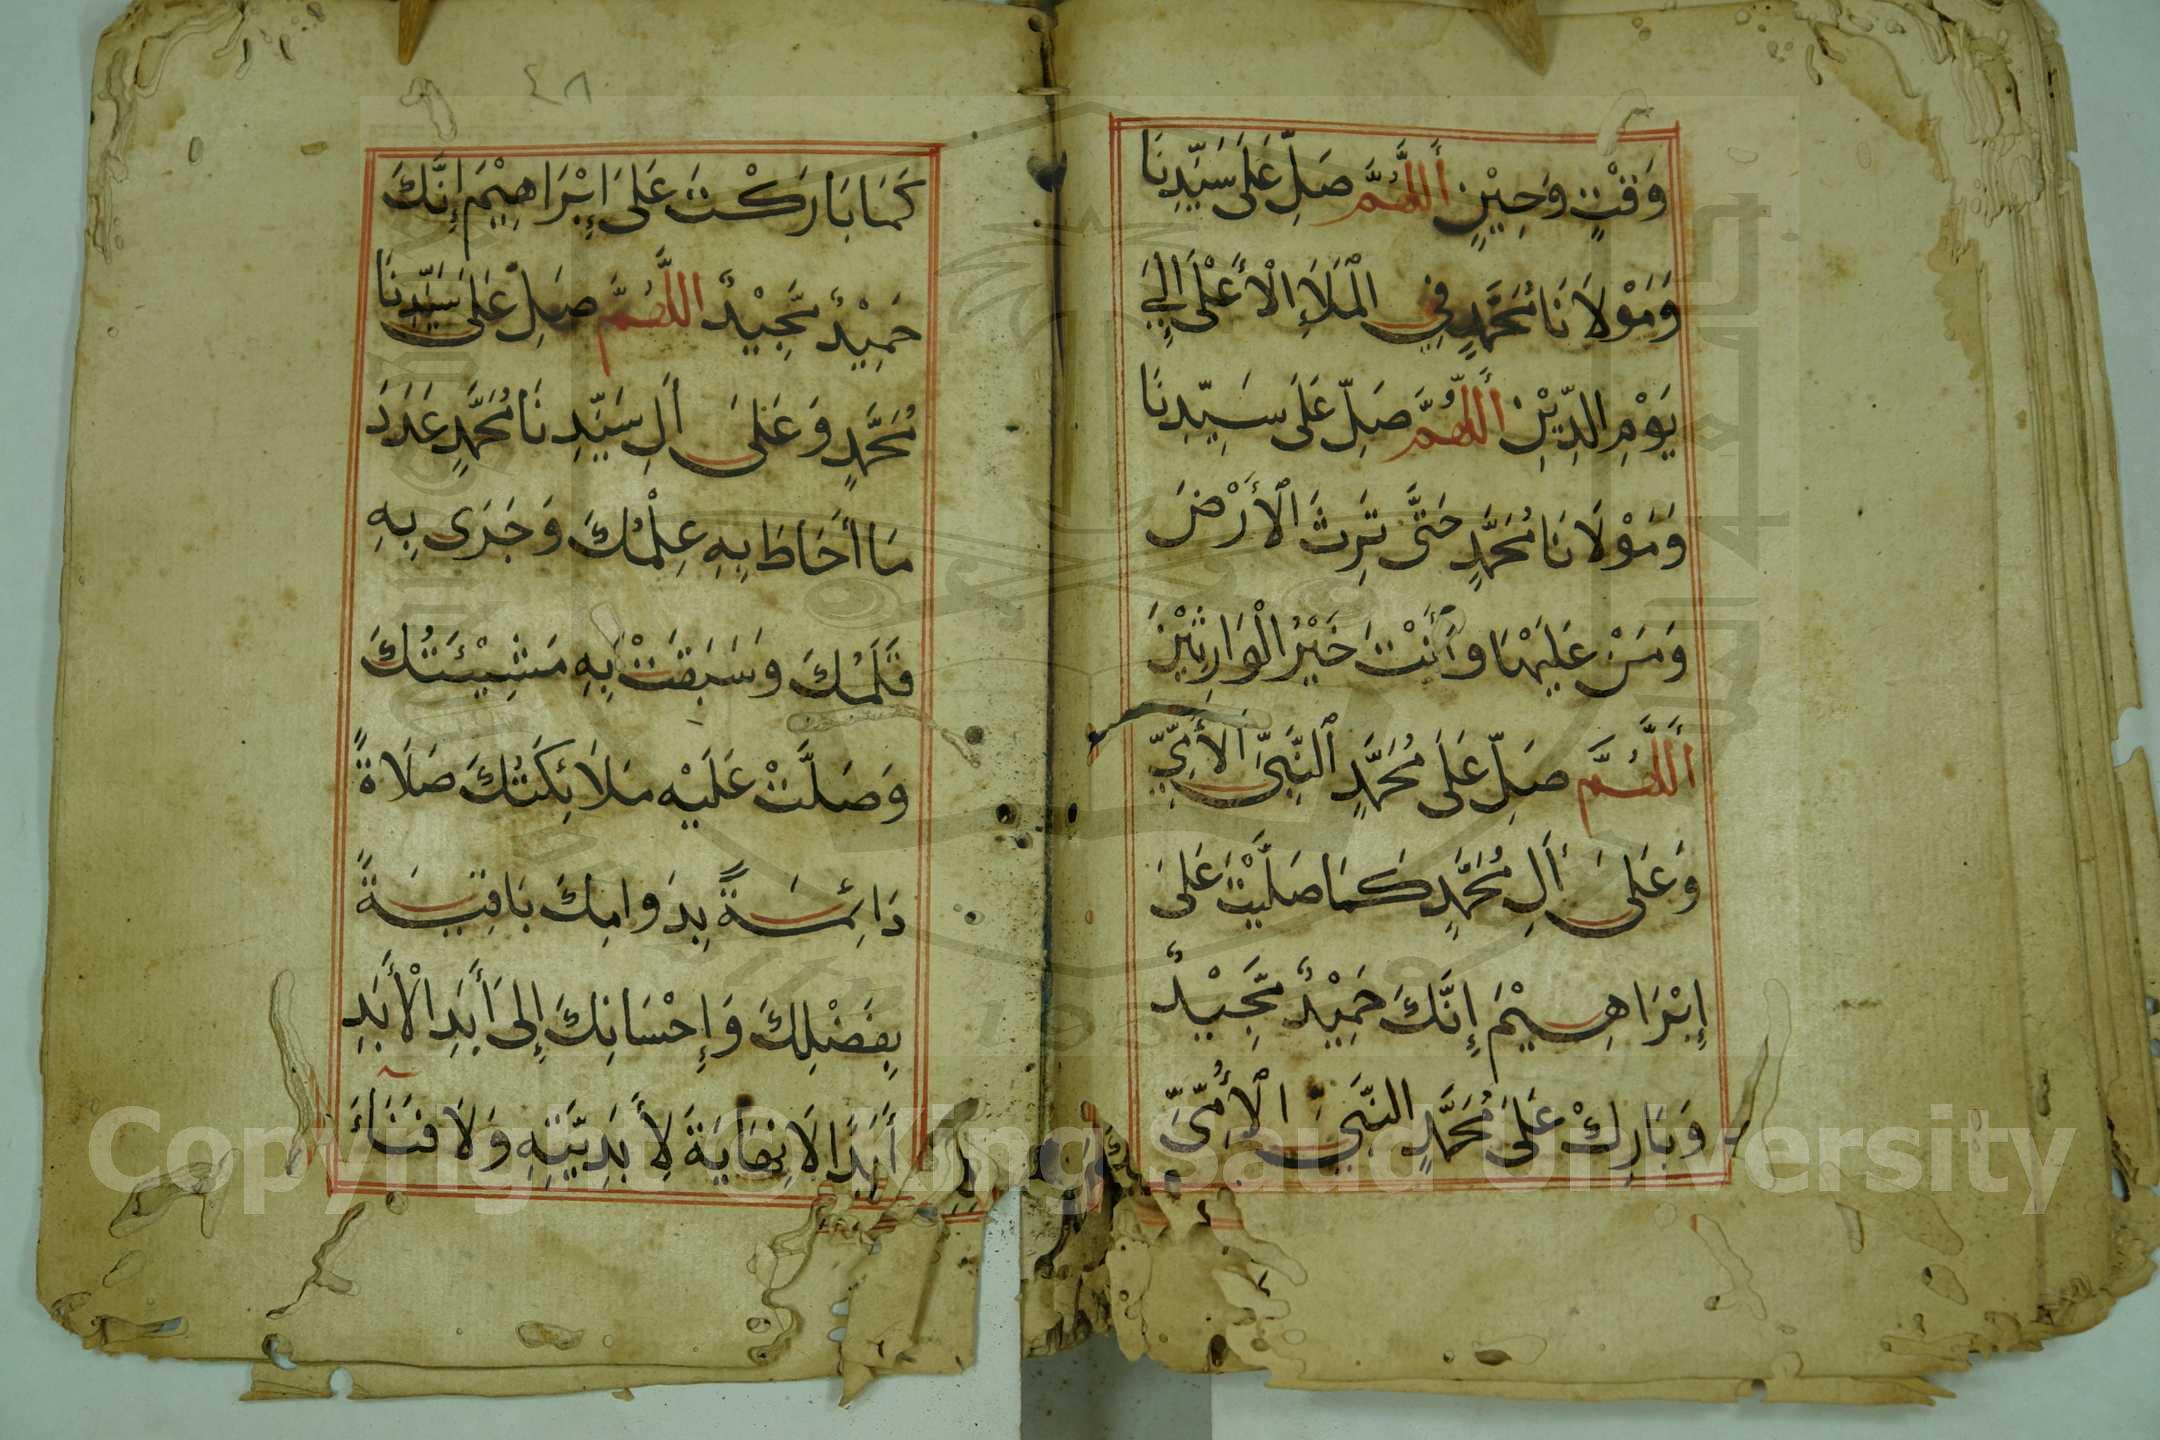 وَقْتٍ وَحِيْنٍ أَللَّهُمَّ صَلِّ عَلَى سَيِّدِنَا
وَمَوْلَانَا مُحَمَّدٍ فِي الْمَلَاءِ الْأَعْلَى إِلَى
يَوْمِ الدِّيْنِ أَللَّهُمَّ صَلِّ عَلَى سَيِّدِنَا
وَمَوْلَانَا مُحَمَّدٍ حَتَّى تَرِثَ الْأَرْضَ
وَمَنْ عَلَيْهَا وَأَنْتَ خَيْرُ الْوَارِثِيْنَ
أَللَّهُمَّ صَلِّ عَلَى مُحَمَّدٍ النَّبِيِّ الْأُمِّيِّ
وَعَلَى أَلِ مُحَمَّدٍ كَمَا صَلَّيْتَ عَلَى
إِبْرَاهِيْمَ إِنَّكَ حَمِيْدٌ مَجِيْدٌ
وَبَارِكْ عَلَى مُحَمَّدٍ النَّبِيِّ الْأُمِّيِّ
٤٨
كَمَا بَارَكْتَ عَلَى إِبْرَاهِيْمَ إِنَّكَ
حَمِيْدٌ مَجِيْدٌ اللَّهُمَّ صَلِّ عَلَى سَيِّدِنَا
مُحَمَّدٍ وَعَلَى أَلِ سَيِّدِنَا مُحَمَّدٍ عَدَدَ
مَا أَحَاطَ بِهِ عِلْمُكَ وَجَرَى بِهِ
قَلَمُكَ وَسَبَقَتْ بِهِ مَشِيْئَتُكَ
وَصَلَّتْ عَلَيْهِ مَلَائِكَتُكَ صَلَاةً
دَائِمَةً بِدَوَامِكَ بَاقِيَةً
بِفَضْلِكَ وَإِحْسَانِكَ إِلَى أَبَدِ الْأَبَدِ
أَبَدًا لَا نِهَايَةَ لِأَبَدِيَّتِهِ وَلَا فَنَاءَ
Copyright © King Saud University